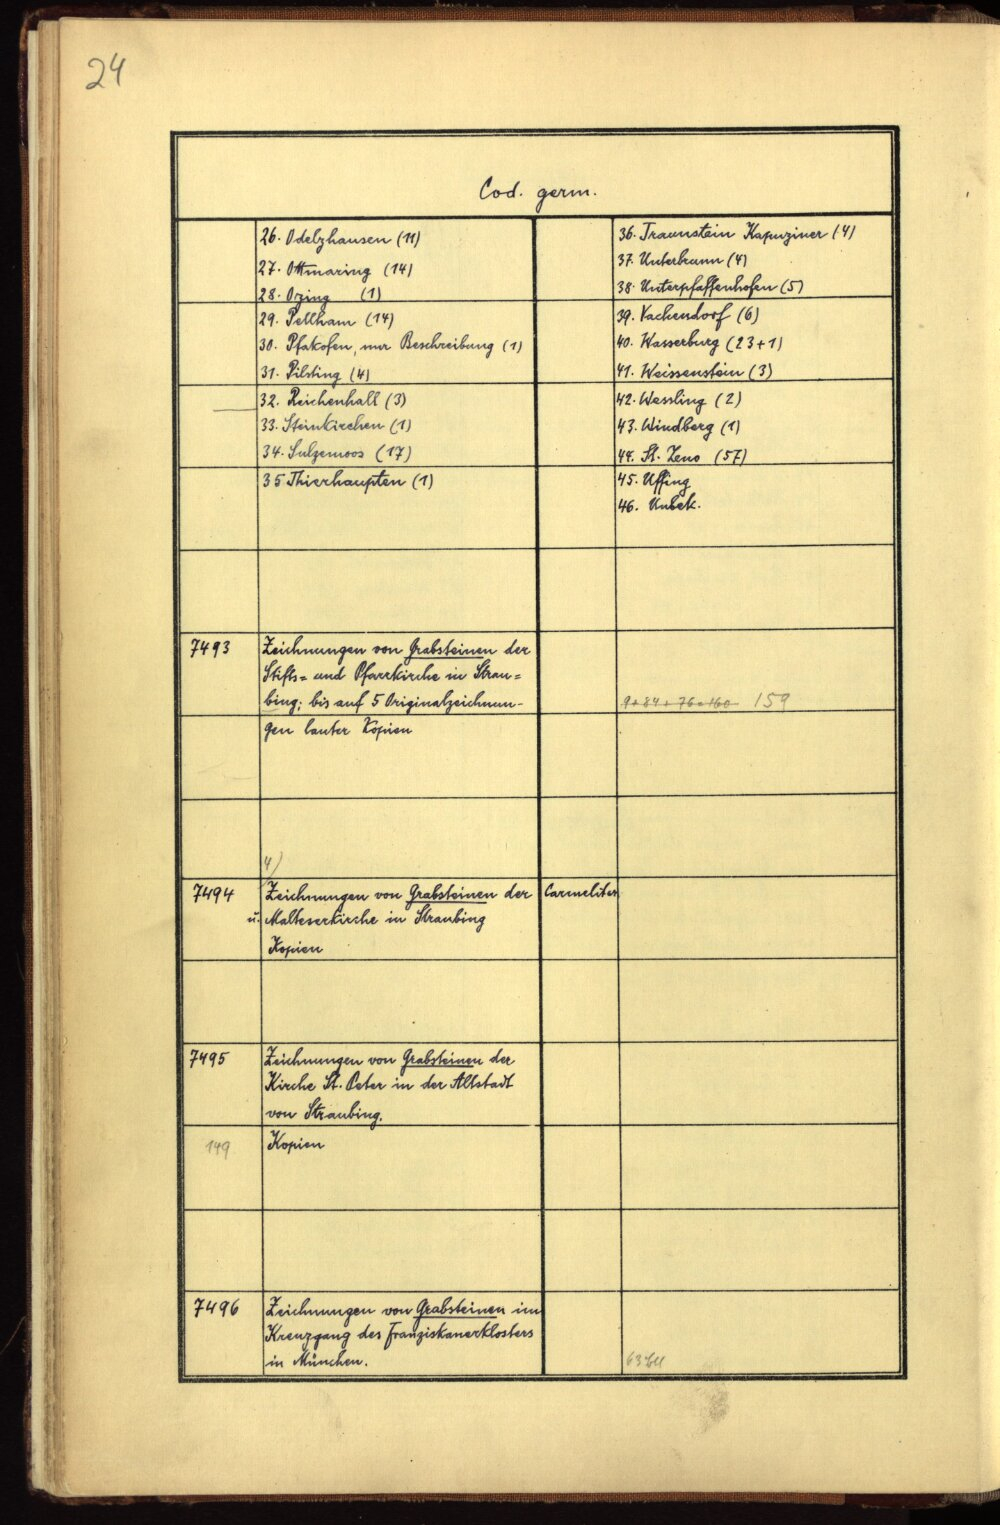 24
Cod. germ.
26. Odelzhausen (11)
27. Ottmaring (14)
28. Orzing (1)
29. Pellham (14)
30. Pfakofen, nur Beschreibung (1)
31. Pilsting (4)
32. Reichenhall (3)
33. Steinkirchen (1)
34. Sulzemoos (17)
35 Thierhaupten (1)
36. Traunstein Kapuziner (4)
37. Unterbrunn (4)
38. Unterpfaffenhofen (5)
39. Vachendorf (6)
40. Wasserburg (23+1)
41. Weissenstein (3)
42. Wessling (2)
43. Windberg (1)
44. St. Zeno (57)
45. Uffing
46. Unbek.
7493
Zeichnungen von Grabsteinen der
Stifts= und Pfarrkirche in Strau=
bing; bis auf 5 Originalzeichnun-
gen lauter Kopien
9+84+76=160 159
4)
7494
Zeichnungen von Grabsteinen der
u. Malteserkirche in Straubing
Kopien
Carmeliter
7495
Zeichnungen von Grabsteinen der
Kirche St. Peter in der Altstadt
von Straubing.
149
Kopien
7496
Zeichnungen von Grabsteinen im
Kreuzgang des Franziskanerklosters
in München.
63 Bll